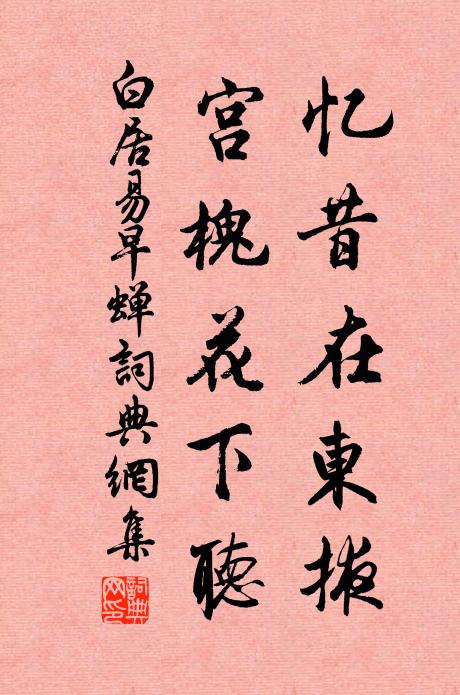 忆昔在東掖
宮槐花下聽
白居易早蝉詞典網集
詞典
网印